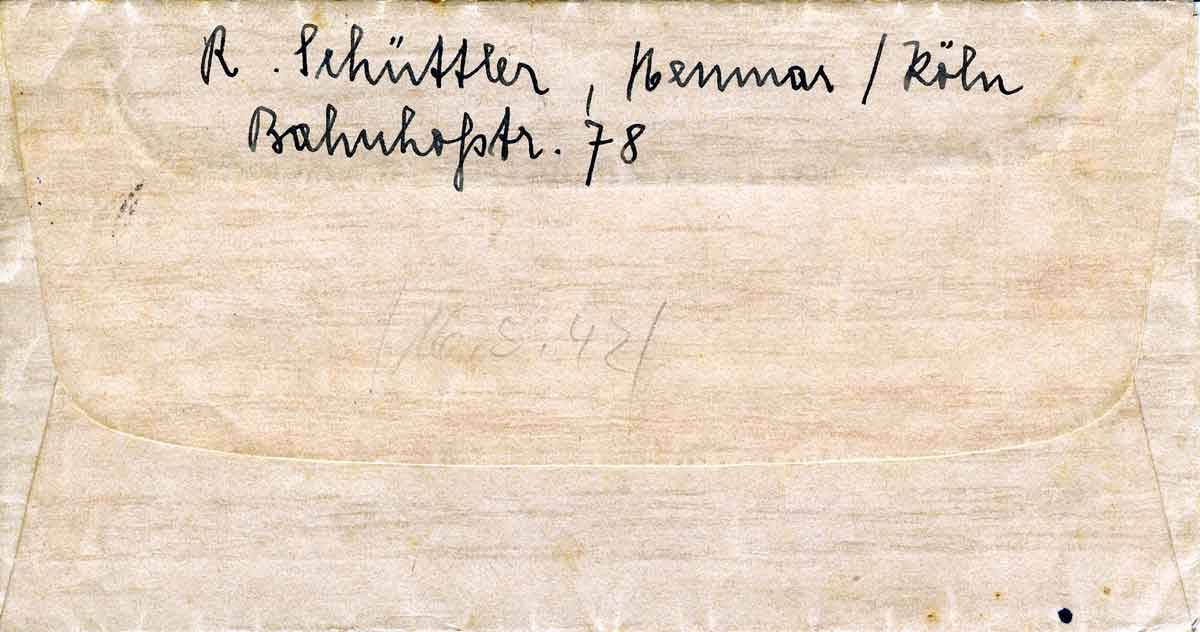 R. Schüttler, Heumar / Köln
Bahnhofstr. 78
/16.5.42/